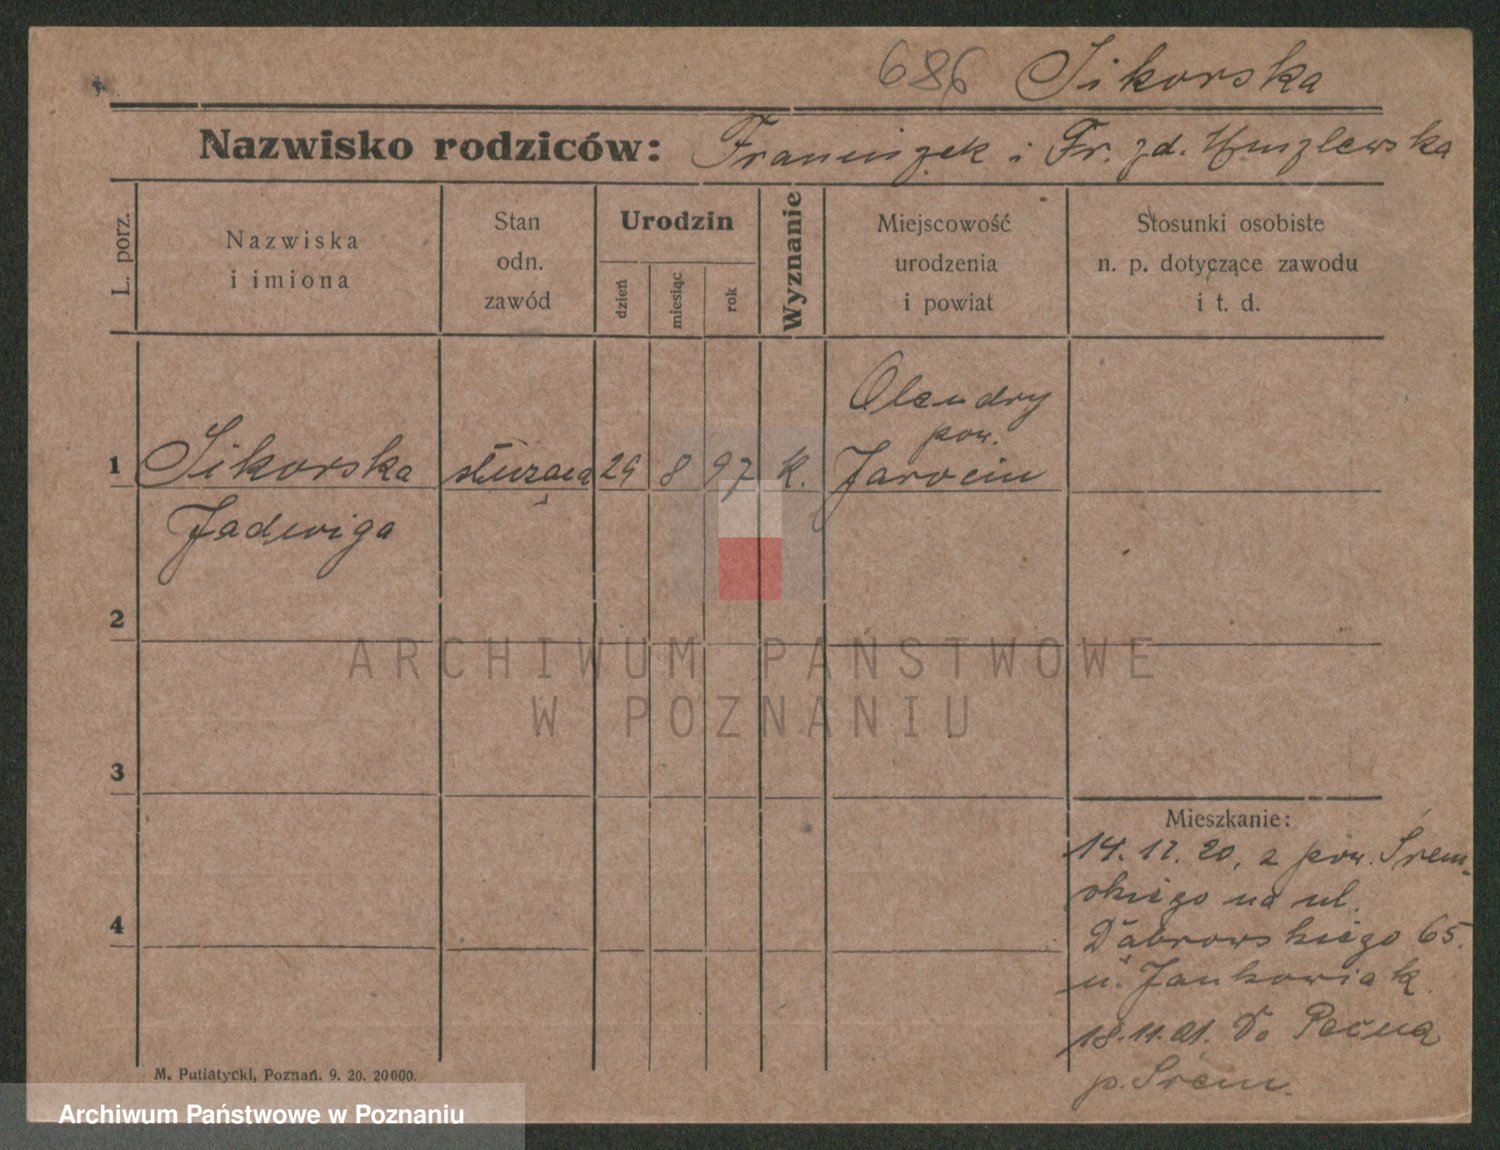 686 Sikorska
Nazwisko rodziców: Franciszek i Fr. zd.
L. porz.
Nazwiska
i imiona
Stan
odn.
zawód
Urodzin
dzień
miesiąc
rok
Wyznanie
Miejscowość
urodzenia
i powiat
Stosunki osobiste
n. p. dotyczące zawodu
i t. d.
1 Sikorska służąca 8 97 k. Olendry
pow.
Jarocin
Jadwiga
2
3
4
Mieszkanie:
14.12.20, z pow. Śrem-
skiego na ul.
Dąbrowskiego 65.
u. Jankowiak
18.11.21. Do
p. Śrem.
M. Putiatycki, Poznań. 9. 20. 20000.
ARCHIWUM PAŃSTWOWE
W POZNANIU
Archiwum Państwowe w Poznaniu